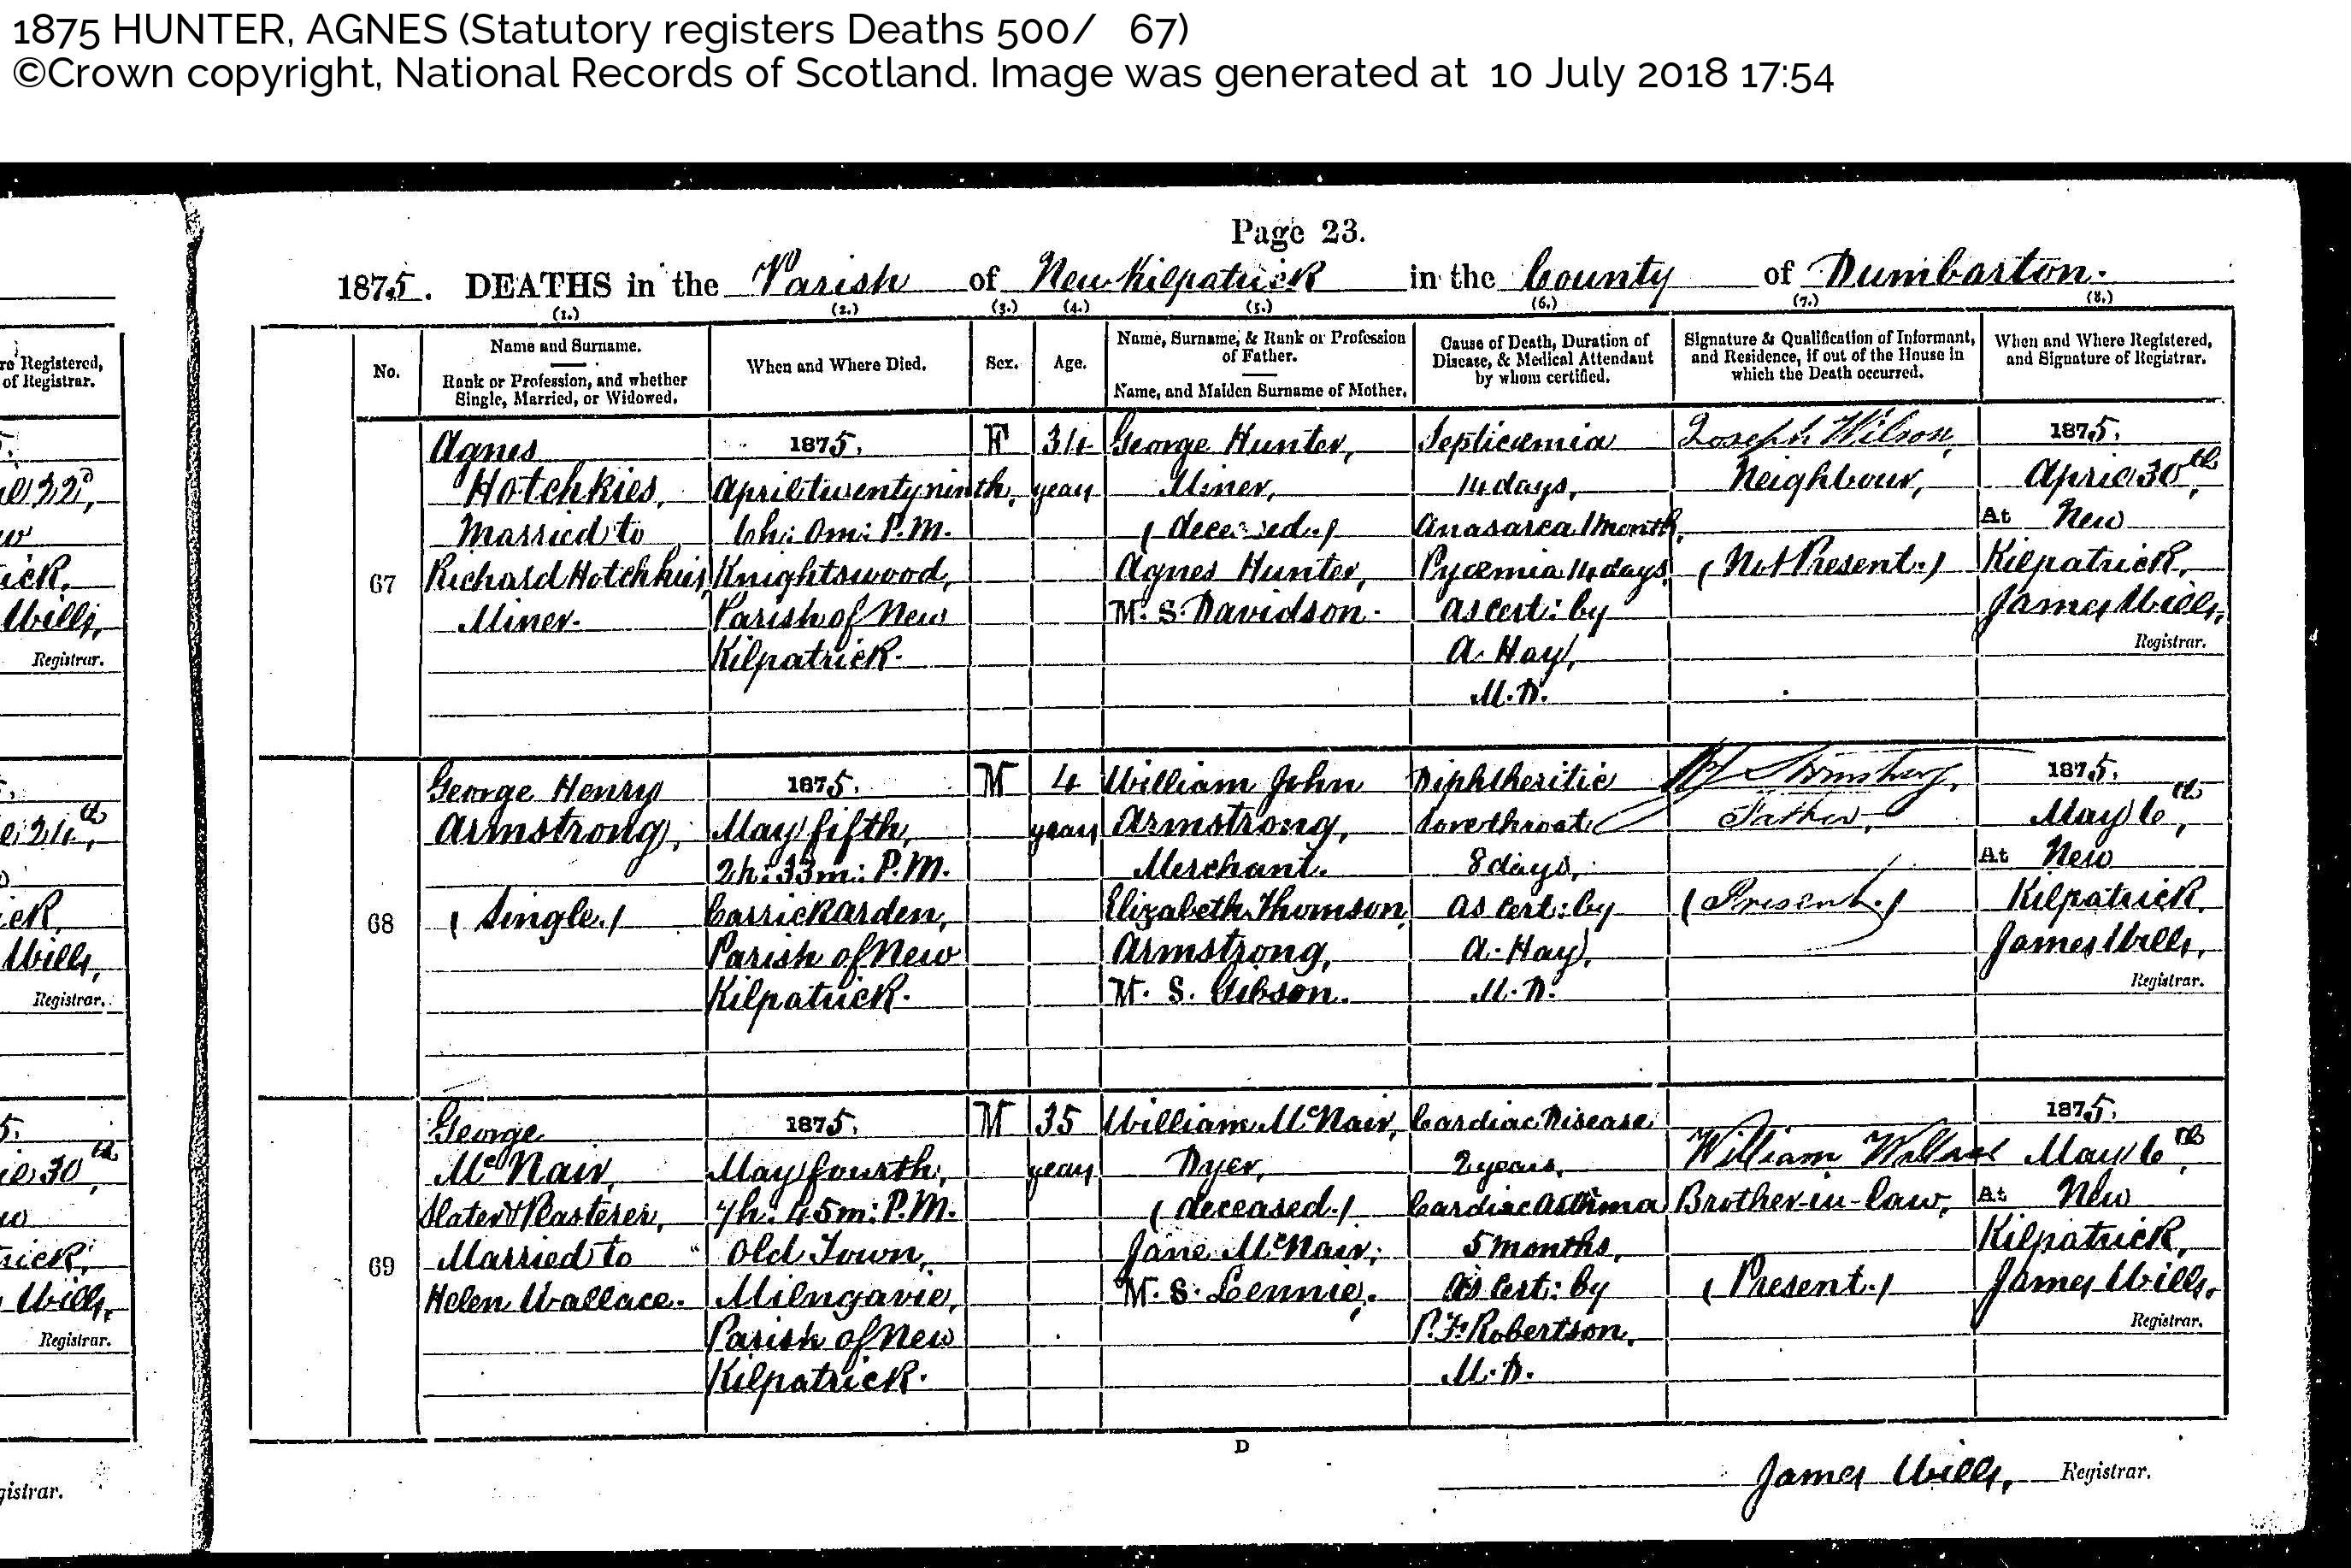 1875 HUNTER, AGNES (Statutory registers Deaths 500/ 67)
©Crown copyright, National Records of Scotland. Image was generated at 10 July 2018 17:54
Page 23.
1875. DEATHS in the Parish of New Kilpatrick in the County of Dumbarton.
(1.) (2.) (3.) (4.) (5.) (6.) (7.) (8.)
No.
Name and Surname.
Rank or Profession, and whether
Single, Married, or Widowed.
When and Where Died.
Sex.
Age.
Name, Surname, & Rank or Profession
of Father.
Name, and Maiden Surname of Mother.
Cause of Death, Duration of
Disease, & Medical Attendant
by whom certified.
Signature & Qualification of Informant,
and Residence, if out of the House in
which the Death occurred.
When and Where Registered,
and Signature of Registrar.
67
Agnes
Hotchkies,
Married to
Richard Hotchkies,
Miner.
1875,
April twenty ninth,
6h: 0m: P.M.
Knightswood,
Parish of New
Kilpatrick.
F
34
years
George Hunter,
Miner,
(deceased.)
Agnes Hunter,
M. S. Davidson.
Septicæmia
14 days,
Anasarca 1 month,
Pyœmia 14 days,
As Cert: by
A. Hay,
M.D.
Joseph Wilson,
Neighbour,
(Not Present.)
1875,
April 30th,
At New
Kilpatrick,
James Wills,
Registrar.
68
George Henry
Armstrong,
(Single.)
1875,
May fifth,
2h: 33m: P.M.
Carrickarden,
Parish of New
Kilpatrick.
M
4
years
William John
Armstrong,
Merchant.
Elizabeth Thomson
Armstrong,
M. S. Gibson.
Diphtheritic
Sore throat
8 days,
As Cert: by
A. Hay,
M.D.
Armstrong,
Father,
(Present.)
1875,
May 6th,
At New
Kilpatrick,
James Wills,
Registrar.
69
George
McNair,
Slater & Plasterer,
Married to
Helen Wallace.
1875,
May fourth,
7h: 45m: P.M.
Old Town,
Milngavie,
Parish of New
Kilpatrick.
M
35
years
William McNair,
Dyer,
(deceased.)
Jane McNair,
M. S. Lennie.
Cardiac Disease
2 years,
Cardiac Asthma
5 months,
As Cert: by
P. F. Robertson,
M.D.
William Wallace
Brother-in-law,
(Present.)
1875,
May 6th,
At New
Kilpatrick,
James Wills,
Registrar.
D
James Wills, Registrar.